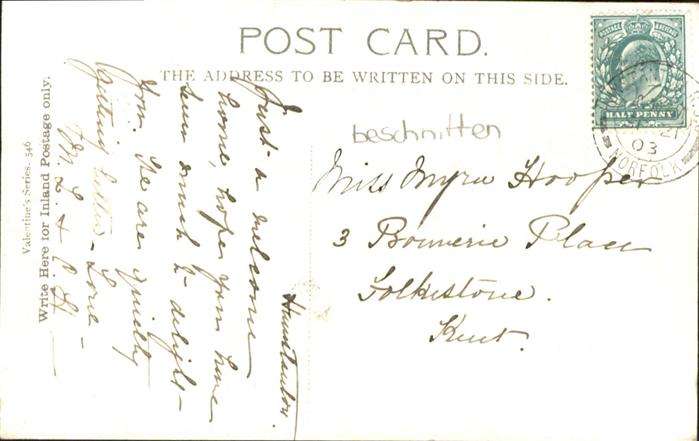 POST CARD.
THE ADDRESS TO BE WRITTEN ON THIS SIDE.
HALF PENNY
03
NORFOLK
beschnitten
Miss Myra Hooper
3 Bouverie Place
Folkestone.
Kent.
Valentine's Series. 546
Write Here for Inland Postage only.
Hunstanton.
Just a welcome
home, hope you have
seen much to delight
you. We are quietly
getting better - Love -